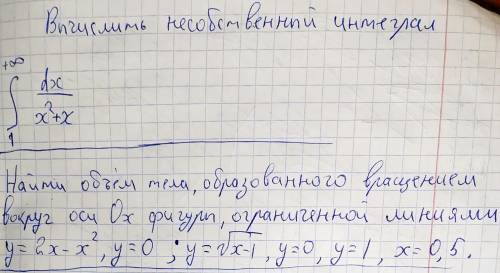 Вычислить несобственный интеграл
+∞
∫ dx/(x²+x)
1
Найти объём тела, образованного вращением
вокруг оси Ox фигуры, ограниченной линиями
y=2x-x², y=0 ; y=√(x-1), y=0, y=1, x=0,5.